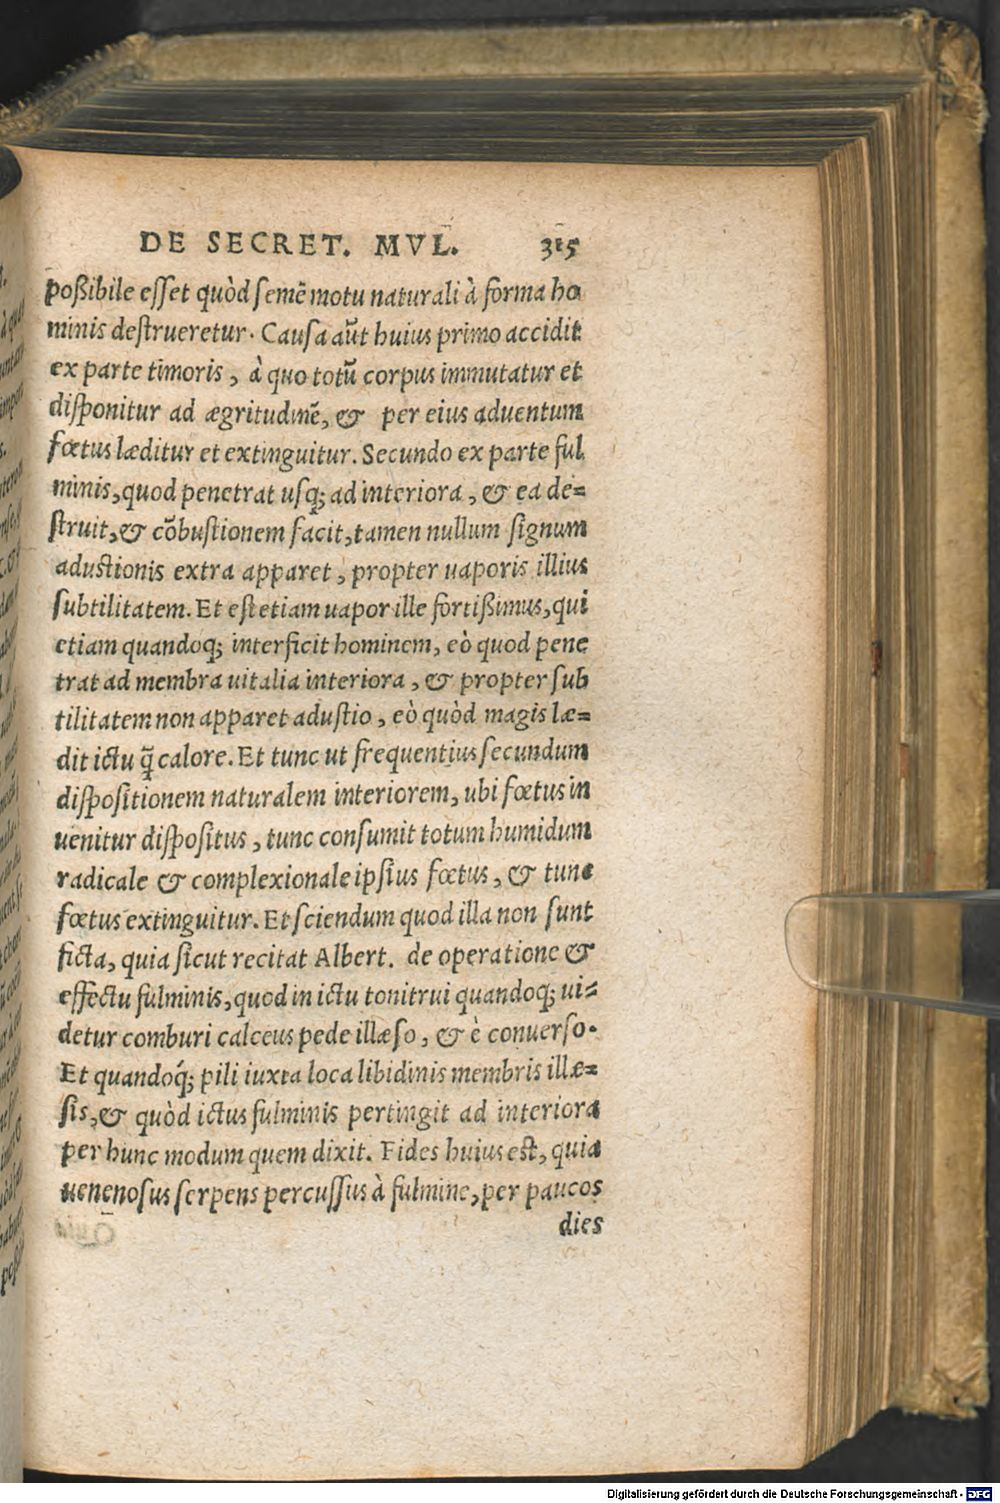 DE SECRET. MVL. 315
poßibile eſſet quòd ſemē motu naturali à forma ho
minis deſtrueretur. Cauſa aūt huius primo accidit
ex parte timoris, à quo totū corpus immutatur et
diſponitur ad ægritudinē, & per eius aduentum
fœtus læditur et extinguitur. Secundo ex parte ful
minis, quod penetrat uſq; ad interiora, & ea de=
ſtruit, & cōbuſtionem facit, tamen nullum ſignum
aduſtionis extra apparet, propter uaporis illius
ſubtilitatem. Et eſt etiam uapor ille fortißimus, qui
etiam quandoq; interficit hominem, eò quod pene
trat ad membra uitalia interiora, & propter ſub
tilitatem non apparet aduſtio, eò quòd magis læ=
dit ictu q̃ calore. Et tunc ut frequentius ſecundum
diſpoſitionem naturalem interiorem, ubi fœtus in
uenitur diſpoſitus, tunc conſumit totum humidum
radicale & complexionale ipſius fœtus, & tunc
fœtus extinguitur. Et ſciendum quod illa non ſunt
ficta, quia ſicut recitat Albert. de operatione &
effectu fulminis, quod in ictu tonitrui quandoq; ui=
detur comburi calceus pede illæſo, & è conuerſo.
Et quandoq́; pili iuxta loca libidinis membris illæ=
ſis, & quòd ictus fulminis pertingit ad interiora
per hunc modum quem dixit. Fides huius eſt, quia
uenenoſus ſerpens percuſſus à fulmine, per paucos
dies
Digitalisierung gefördert durch die Deutsche Forschungsgemeinschaft - DFG